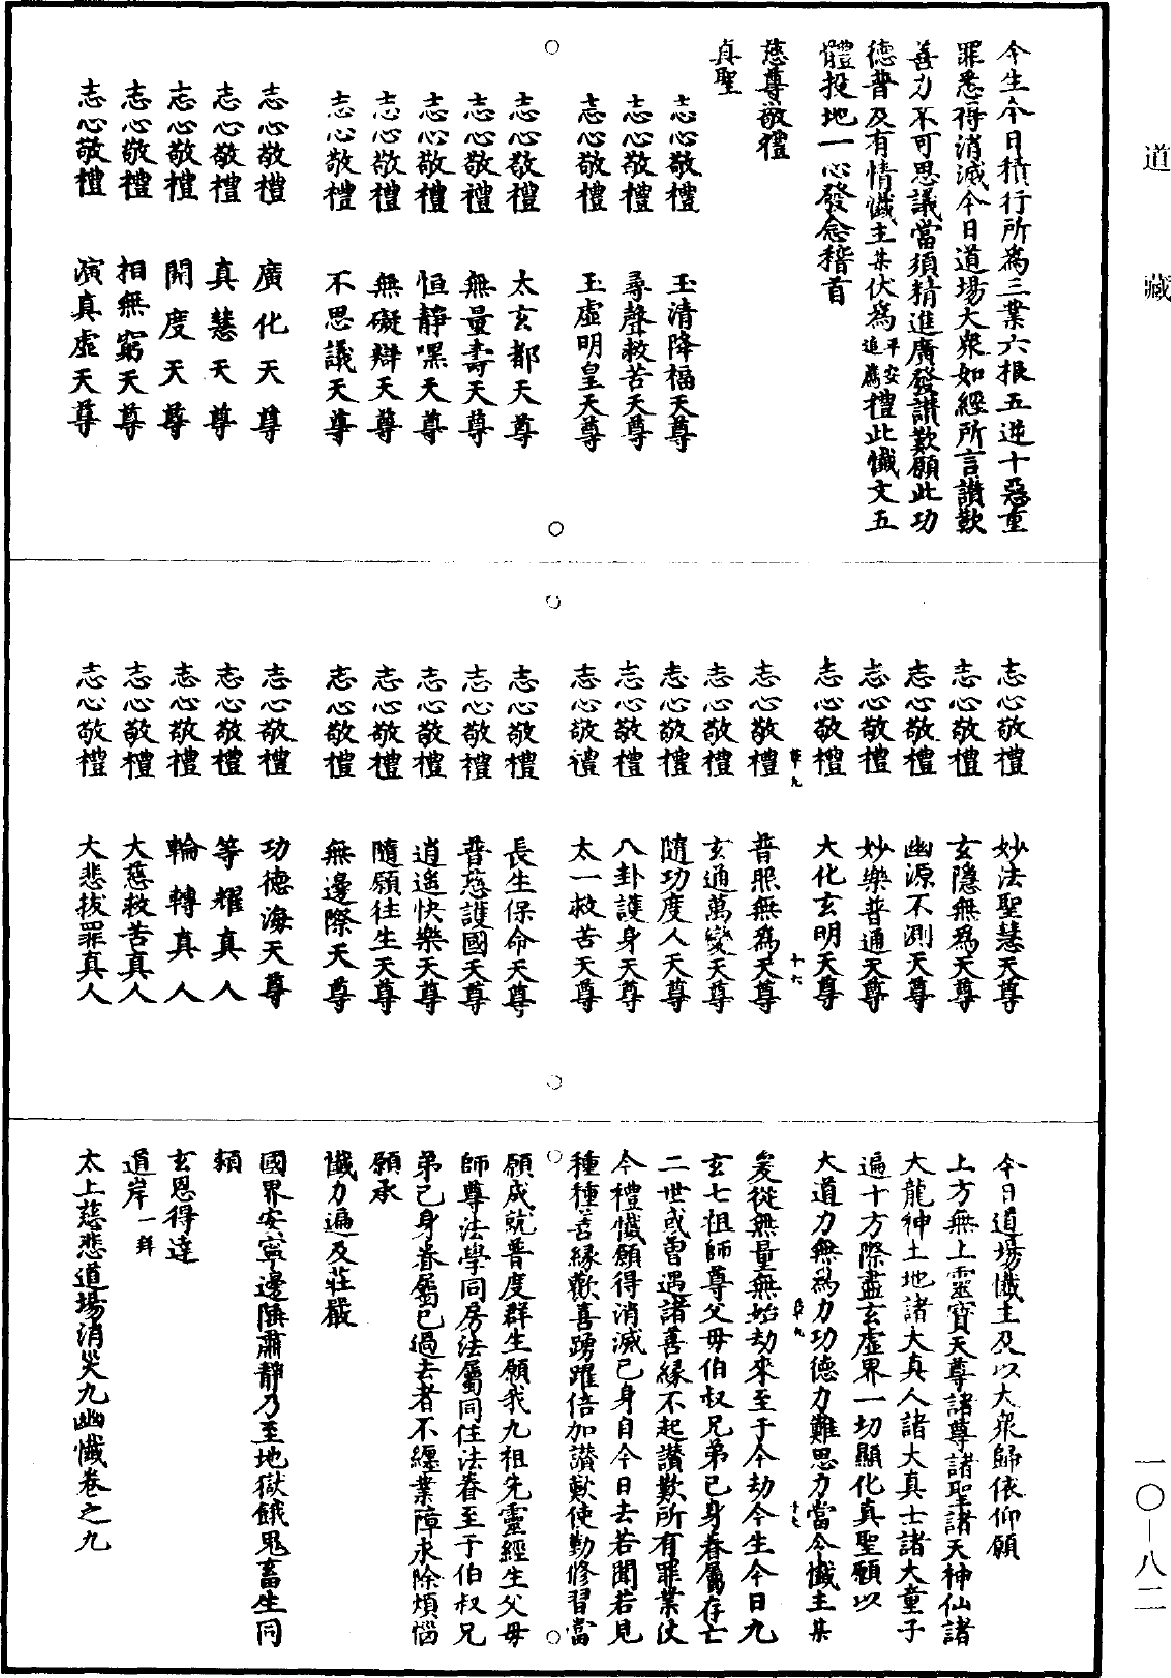 道藏
今生今日積行所為三業六根五逆十惡重
罪悉得消滅今日道場大衆如經所言讃歎
善力不可思議當須精進廣發讃歎願此功
德普及有情懺主某伏為平安追薦禮此懺文五
體投地一心發念稽首
慈尊敬禮
真聖
志心敬禮 玉清降福天尊
志心敬禮 尋聲救苦天尊
志心敬禮 玉虛明皇天尊
志心敬禮 太玄都天尊
志心敬禮 無量壽天尊
志心敬禮 恒靜嘿天尊
志心敬禮 無礙辯天尊
志心敬禮 不思議天尊
志心敬禮 廣化天尊
志心敬禮 真慧天尊
志心敬禮 開度天尊
志心敬禮 相無窮天尊
志心敬禮 演真虛天尊
志心敬禮 妙法聖慧天尊
志心敬禮 玄隱無為天尊
志心敬禮 幽源不測天尊
志心敬禮 妙樂普通天尊
志心敬禮 大化玄明天尊
志心敬禮 普照無為天尊
志心敬禮 玄通萬變天尊
志心敬禮 隨功度人天尊
志心敬禮 八卦護身天尊
志心敬禮 太一救苦天尊
志心敬禮 長生保命天尊
志心敬禮 普慈護國天尊
志心敬禮 逍遥快樂天尊
志心敬禮 隨願往生天尊
志心敬禮 無邊際天尊
志心敬禮 功德海天尊
志心敬禮 等耀真人
志心敬禮 輪轉真人
志心敬禮 大慈救苦真人
志心敬禮 大悲拔罪真人
今日道場懺主及以大衆歸依仰願
上方無上靈寳天尊諸尊諸聖諸天神仙諸
大龍神土地諸大真人諸大真士諸大童子
遍十方際盡玄虛界一切顯化真聖願以
大道力無為力功德力難思力當令懺主某
爰從無量無始劫來至于今劫今生今日九
玄七祖師尊父母伯叔兄弟已身眷屬存亡
二世或曾遇諸善緣不起讃歎所有罪業仗
今禮懺願得消滅已身自今日去若聞若見
種種善緣歡喜踴躍倍加讃歎使勤修習當
願成就普度群生願我九祖先靈經生父母
師尊法學同房法屬同住法眷至于伯叔兄
弟已身眷屬已過去者不纏業障永除煩惱
願承
懺力遍及莊嚴
國界安寧邊陲肅靜乃至地獄餓鬼畜生同
頼
玄恩得達
道岸一拜
太上慈悲道場消災九幽懺卷之九
一〇—八二一